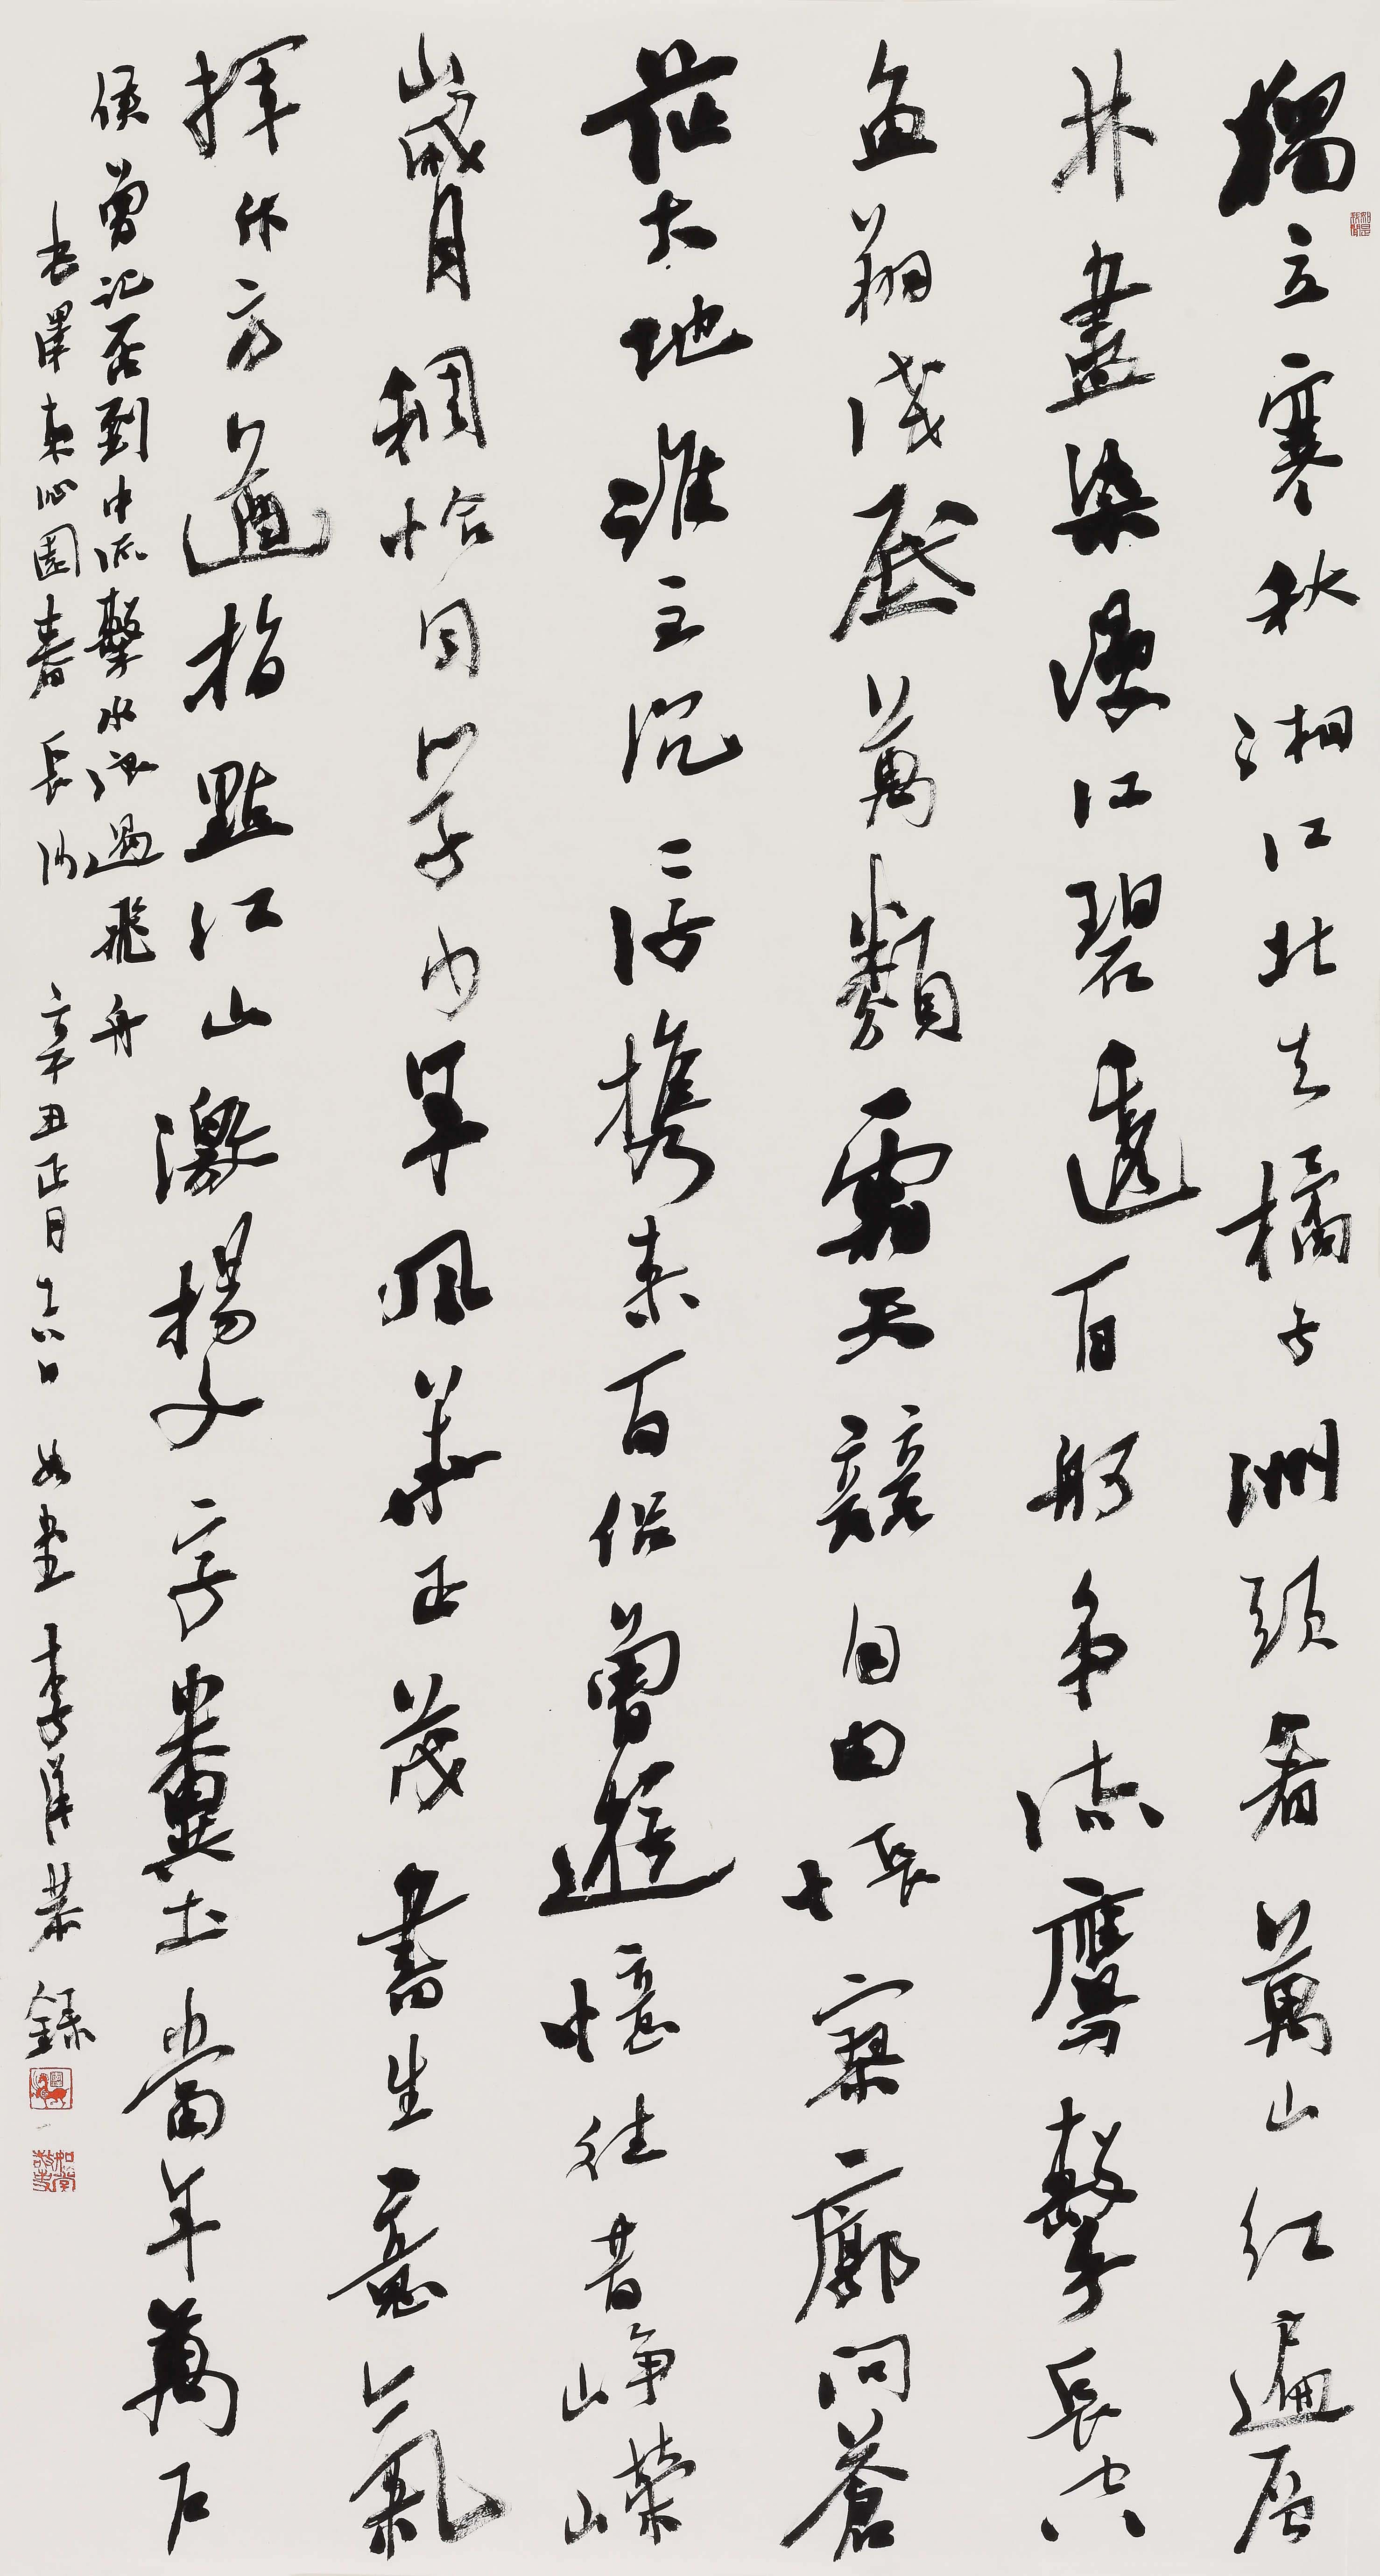 獨立寒秋湘江北去橘子洲頭看萬山紅遍層
林盡染漫江碧透百舸争流鷹擊長空
魚翔淺底萬類霜天競自由悵寥廓問蒼
茫大地誰主沉浮携來百侣曾遊憶往昔崢嶸
歲月稠恰同學少年風華正茂書生意氣
揮斥方遒指點江山激揚文字糞土當年萬户
侯曾記否到中流擊水浪遏飛舟
毛澤東沁園春長沙 辛丑正月十六日 如堂李恭錄